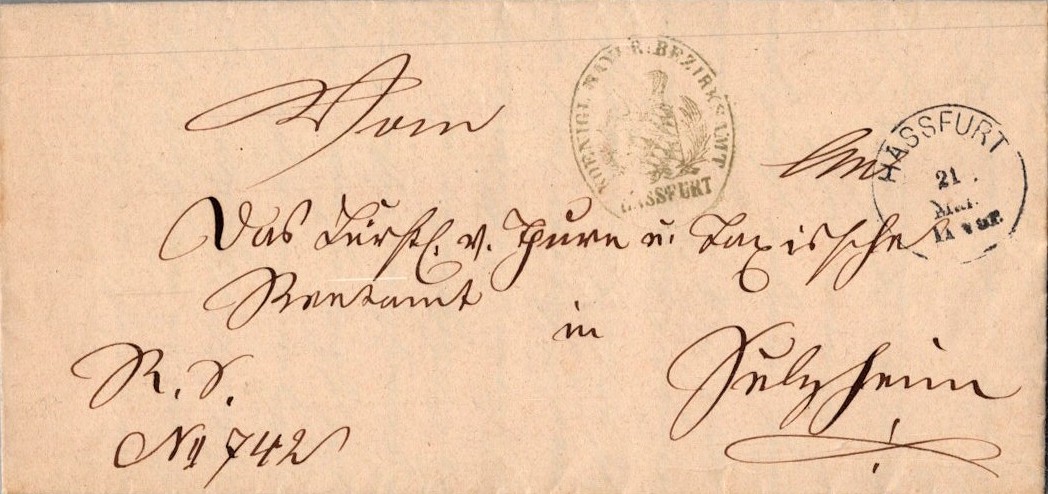 Vom
KOENIGL. BAYER. BEZIRKSAMT
HASSFURT
An
HASSFURT
21
Mai.
11 Vor.
das Fürstl. v. Thurn u. Taxissche
Rentamt
in
Sulzheim
R. S.
No 742